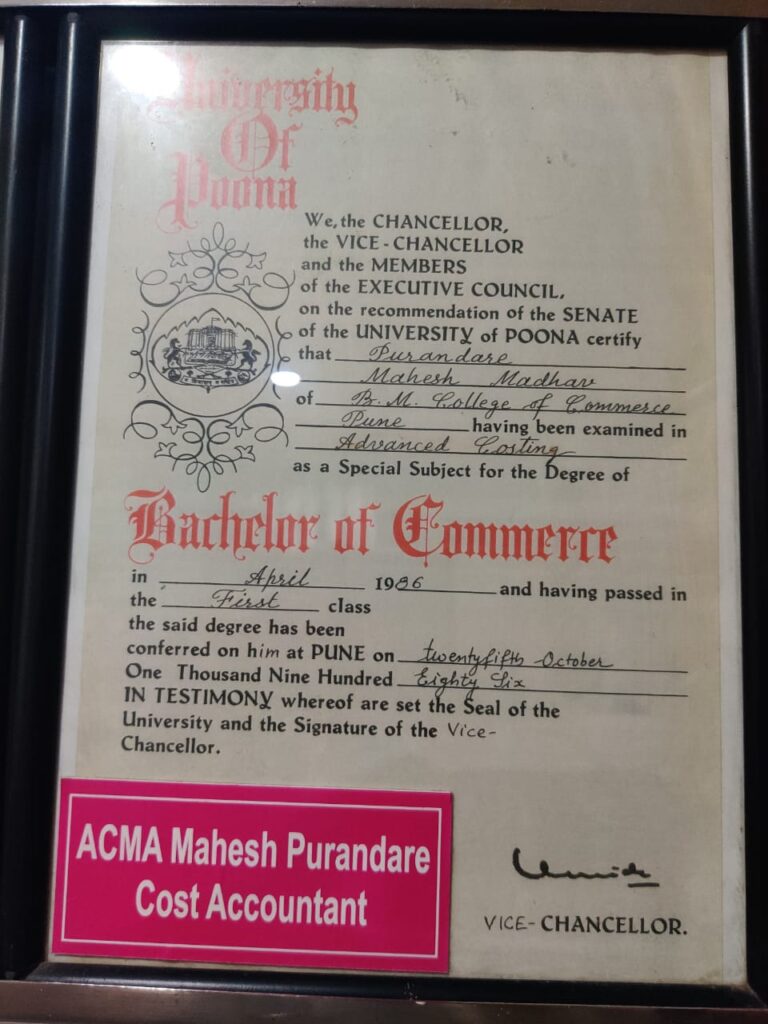 University
Of
Poona
We, the CHANCELLOR,
the VICE-CHANCELLOR
and the MEMBERS
of the EXECUTIVE COUNCIL,
on the recommendation of the SENATE
of the UNIVERSITY of POONA certify
that Purandare
Mahesh Madhav
of B. M. College of Commerce
Pune having been examined in
Advanced Costing
as a Special Subject for the Degree of
Bachelor of Commerce
in April 1986 and having passed in
the First class
the said degree has been
conferred on him at PUNE on twentyfifth October
One Thousand Nine Hundred Eighty Six
IN TESTIMONY whereof are set the Seal of the
University and the Signature of the Vice-
Chancellor.
ACMA Mahesh Purandare
Cost Accountant
VICE-CHANCELLOR.